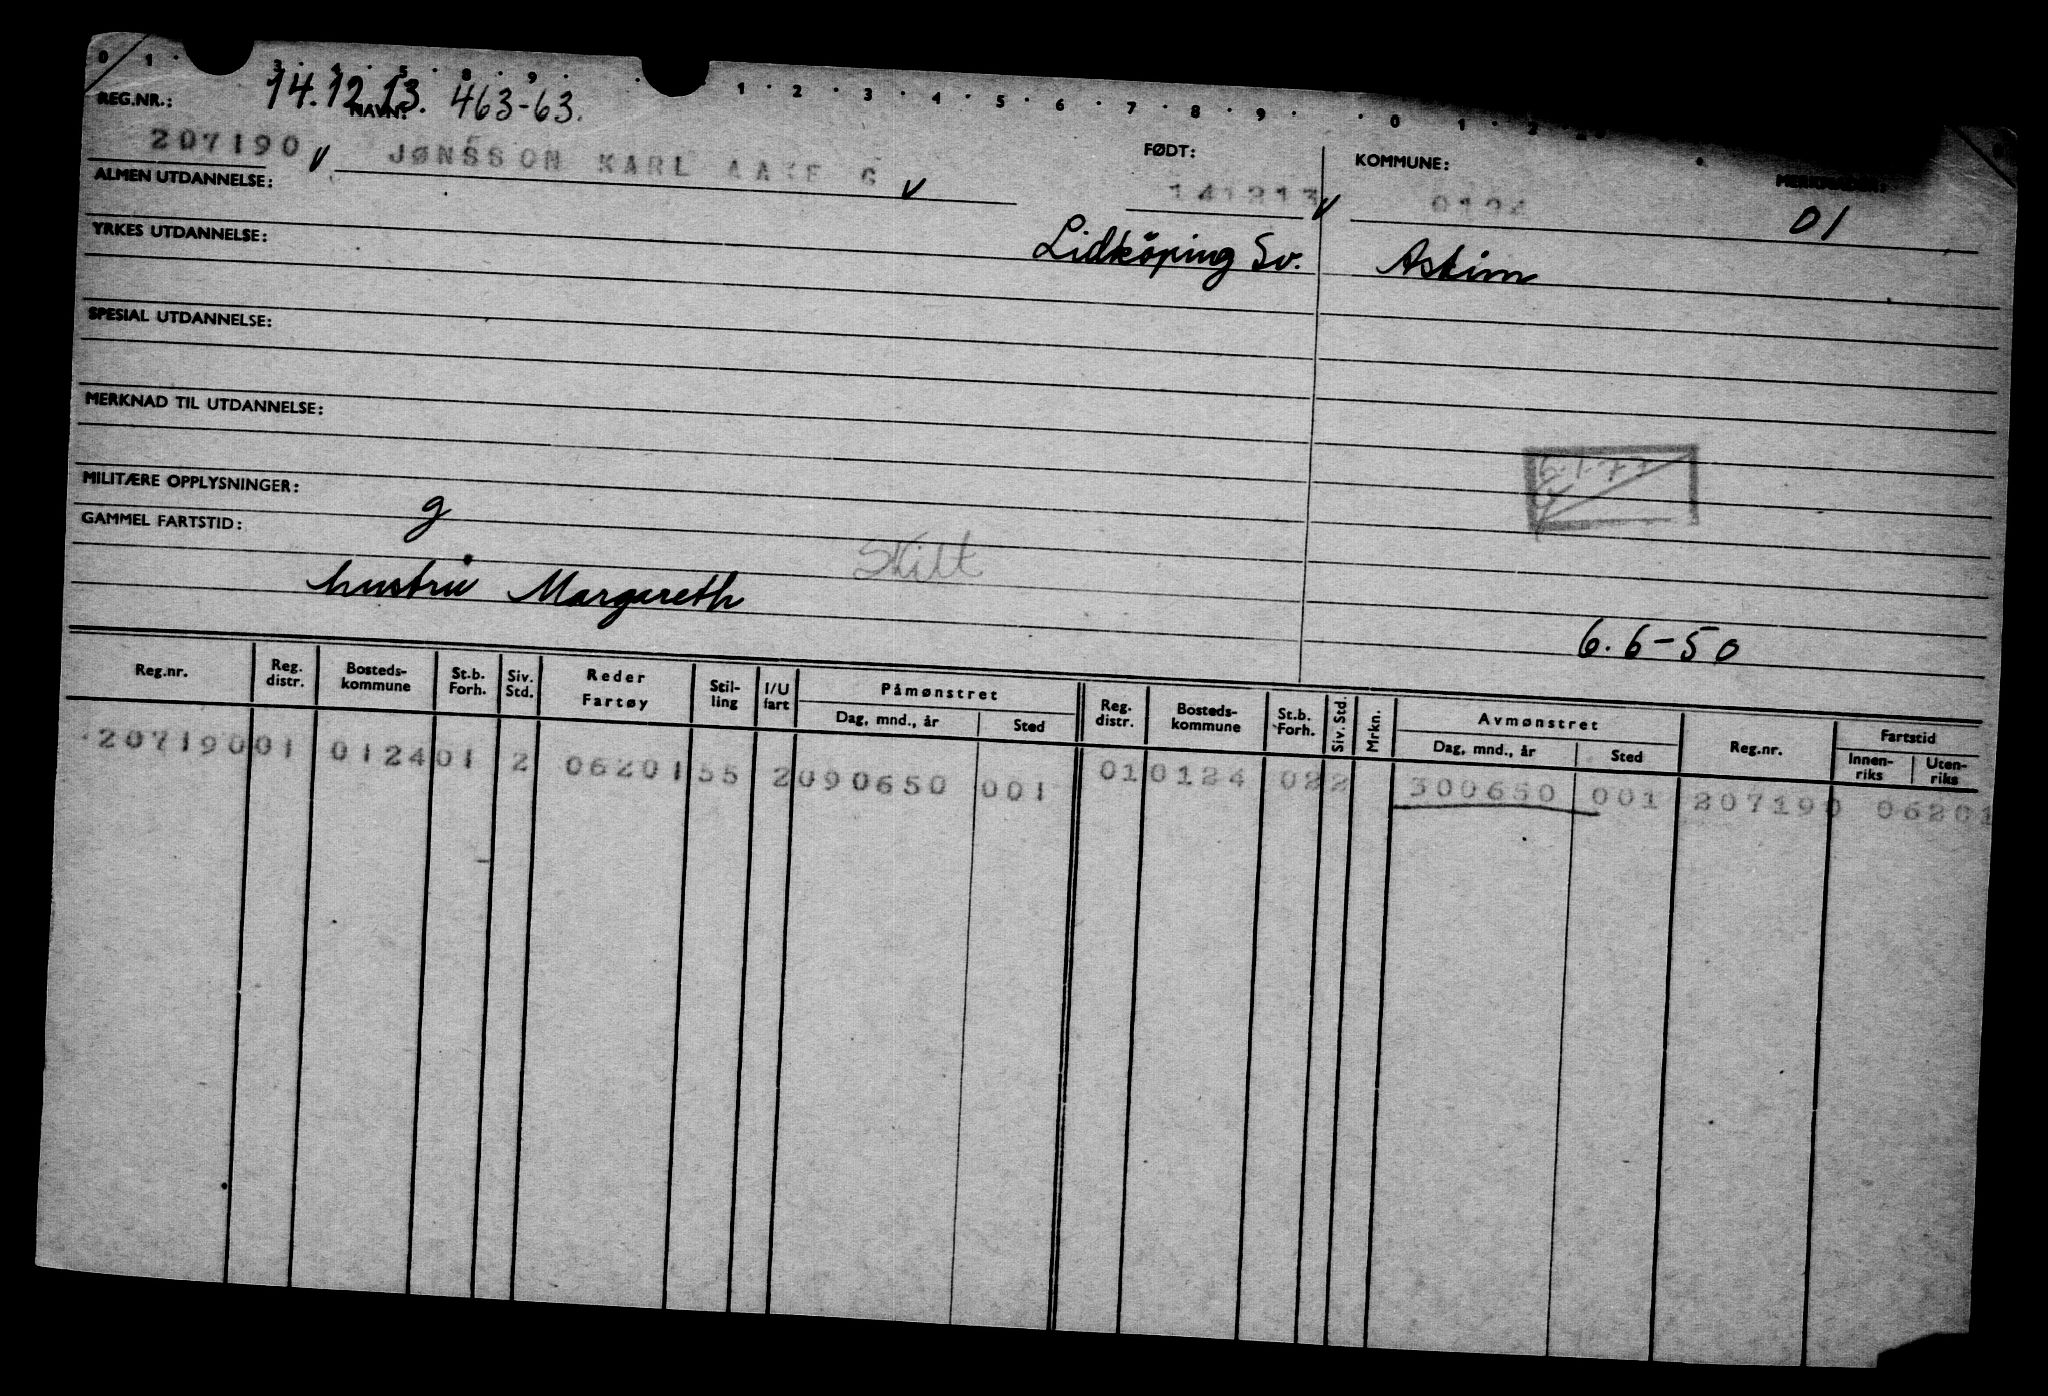 0 1 · 3 · 4 · 5 · 8 · 9 · · 1 · 2 · 3 · 4 · 5 · 6 · 7 · 8 · 9 · · 0 · 1 · 2
14.12.13. 463-63.
REG.NR.: NAVN: FØDT: KOMMUNE:
207190 v JØNSSON KARL AAKE G v 141213 v 0124 01
ALMEN UTDANNELSE:
Lidköping Sv. Askim
YRKES UTDANNELSE:
SPESIAL UTDANNELSE:
MERKNAD TIL UTDANNELSE:
6.1.77
MILITÆRE OPPLYSNINGER:
g
GAMMEL FARTSTID:
Skilt
hustru Margareth
6.6-50
Reg.nr. Reg. distr. Bosteds-kommune St.b. Forh. Siv. Std. Reder Fartøy Stil-ling I/U fart Påmønstret Dag, mnd., år Sted Reg. distr. Bosteds-kommune St.b. Forh. Siv. Std. Mrkn. Avmønstret Dag, mnd., år Sted Reg.nr. Fartstid Innen-riks Uten-riks
207190 01 0124 01 2 06201 55 2 090650 001 01 0124 02 2 300650 001 207190 06201